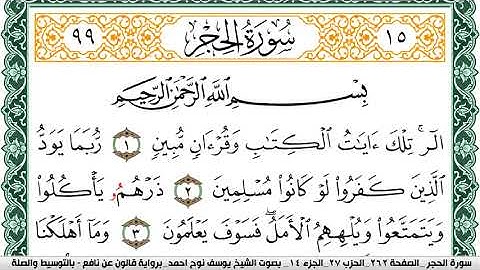 ١٥ سُورَةُ الحِجْرِ ٩٩
بِسْمِ اللَّهِ الرَّحْمَٰنِ الرَّحِيمِ
الٓرۚ تِلْكَ ءَايَٰتُ الْكِتَٰبِ وَقُرْءَانٖ مُّبِينٖ ١ رُّبَمَا يَوَدُّ
الَّذِينَ كَفَرُوا لَوْ كَانُوا مُسْلِمِينَ ٢ ذَرْهُمُۥ يَأْكُلُوا
وَيَتَمَتَّعُوا وَيُلْهِهِمُ الْأَمَلُۖ فَسَوْفَ يَعْلَمُونَ ٣ وَمَا أَهْلَكْنَا
سورة الحجر_الصفحة ٢٦٢_الحزب ٢٧_الجزء ١٤_ بصوت الشيخ يوسف نوح احمد_برواية قالون عن نافع - بالتوسيط والصلة